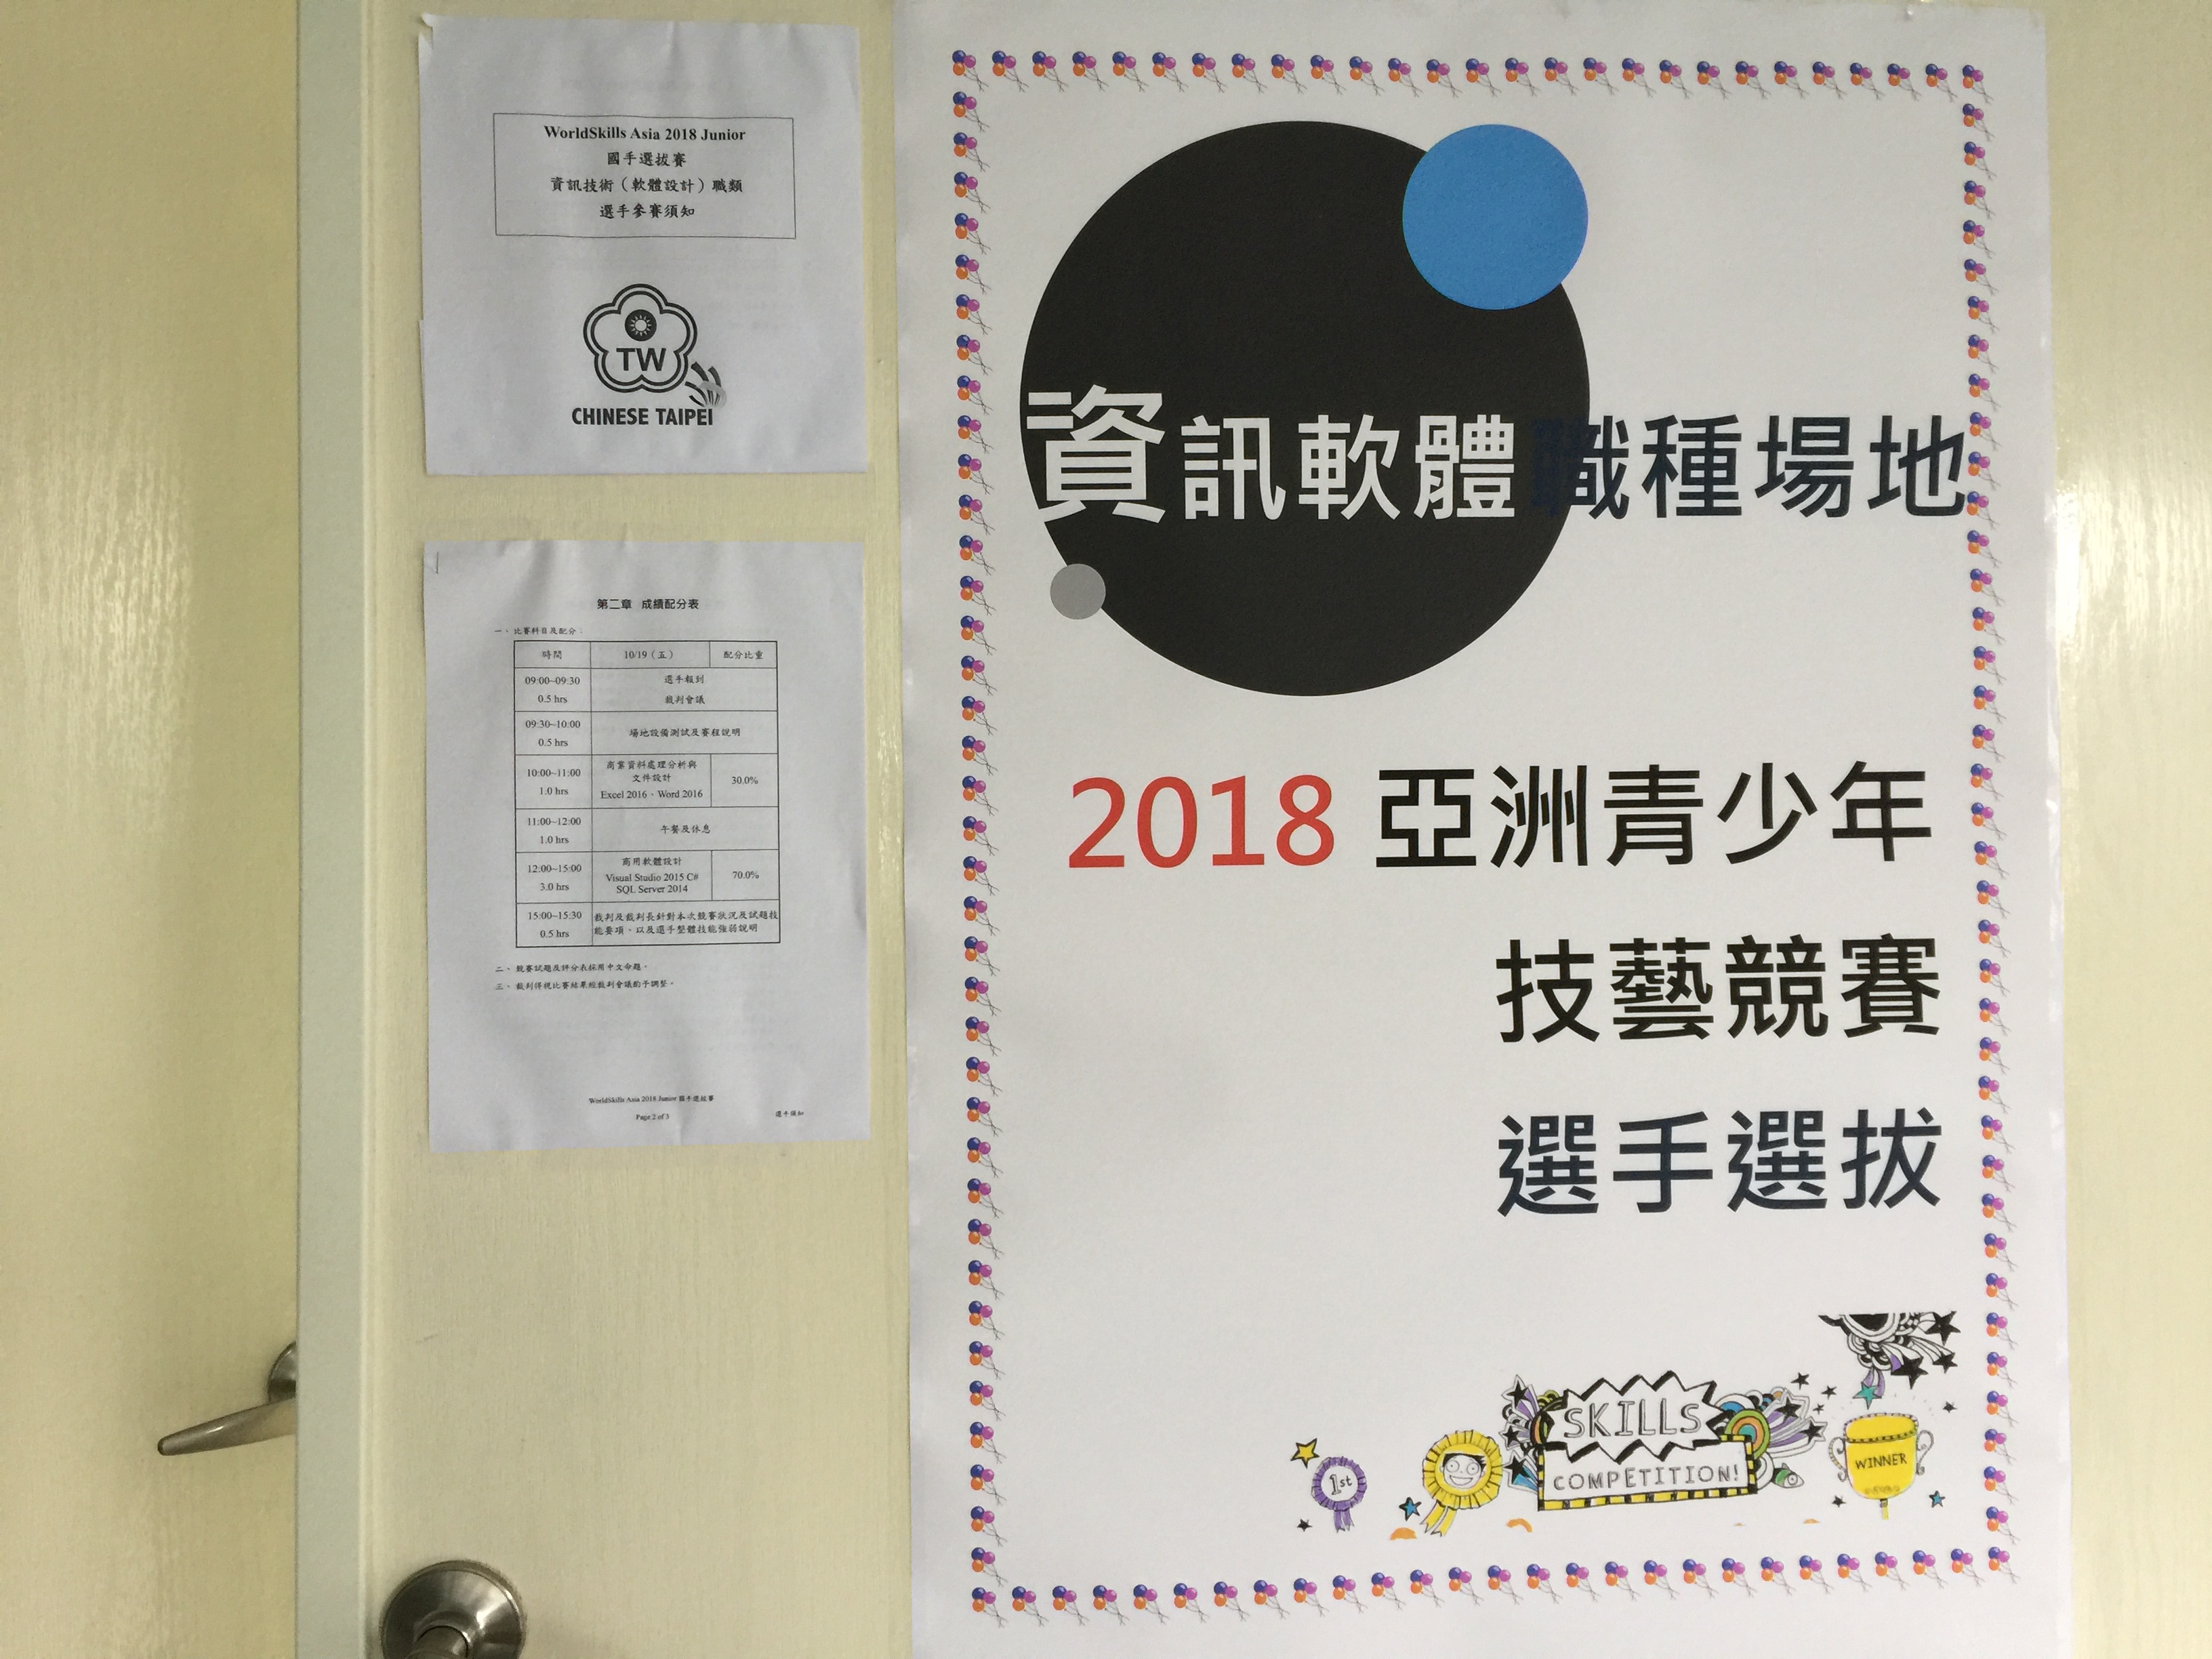 WorldSkills Asia 2018 Junior
國手選拔賽
資訊技術（軟體設計）職類
選手參賽須知
TW
CHINESE TAIPEI
第二章 成績配分表
一、比賽科目及配分：
時間 10/19（五） 配分比重
09:00~09:30
0.5 hrs
選手報到
裁判會議
09:30~10:00
0.5 hrs
場地設備測試及賽程說明
10:00~11:00
1.0 hrs
商業資料處理分析與
文件設計
Excel 2016、Word 2016
30.0%
11:00~12:00
1.0 hrs
午餐及休息
12:00~15:00
3.0 hrs
商用軟體設計
Visual Studio 2015 C#
SQL Server 2014
70.0%
15:00~15:30
0.5 hrs
裁判及裁判長針對本次競賽狀況及試題技
能要項，以及選手整體技能強弱說明
二、競賽試題及評分表採用中文命題。
三、裁判得視比賽結果經裁判會議酌予調整。
WorldSkills Asia 2018 Junior 國手選拔賽
Page 2 of 3
選手須知
資訊軟體 職種場地
2018 亞洲青少年
技藝競賽
選手選拔
1st
SKILLS
COMPETITION!
WINNER